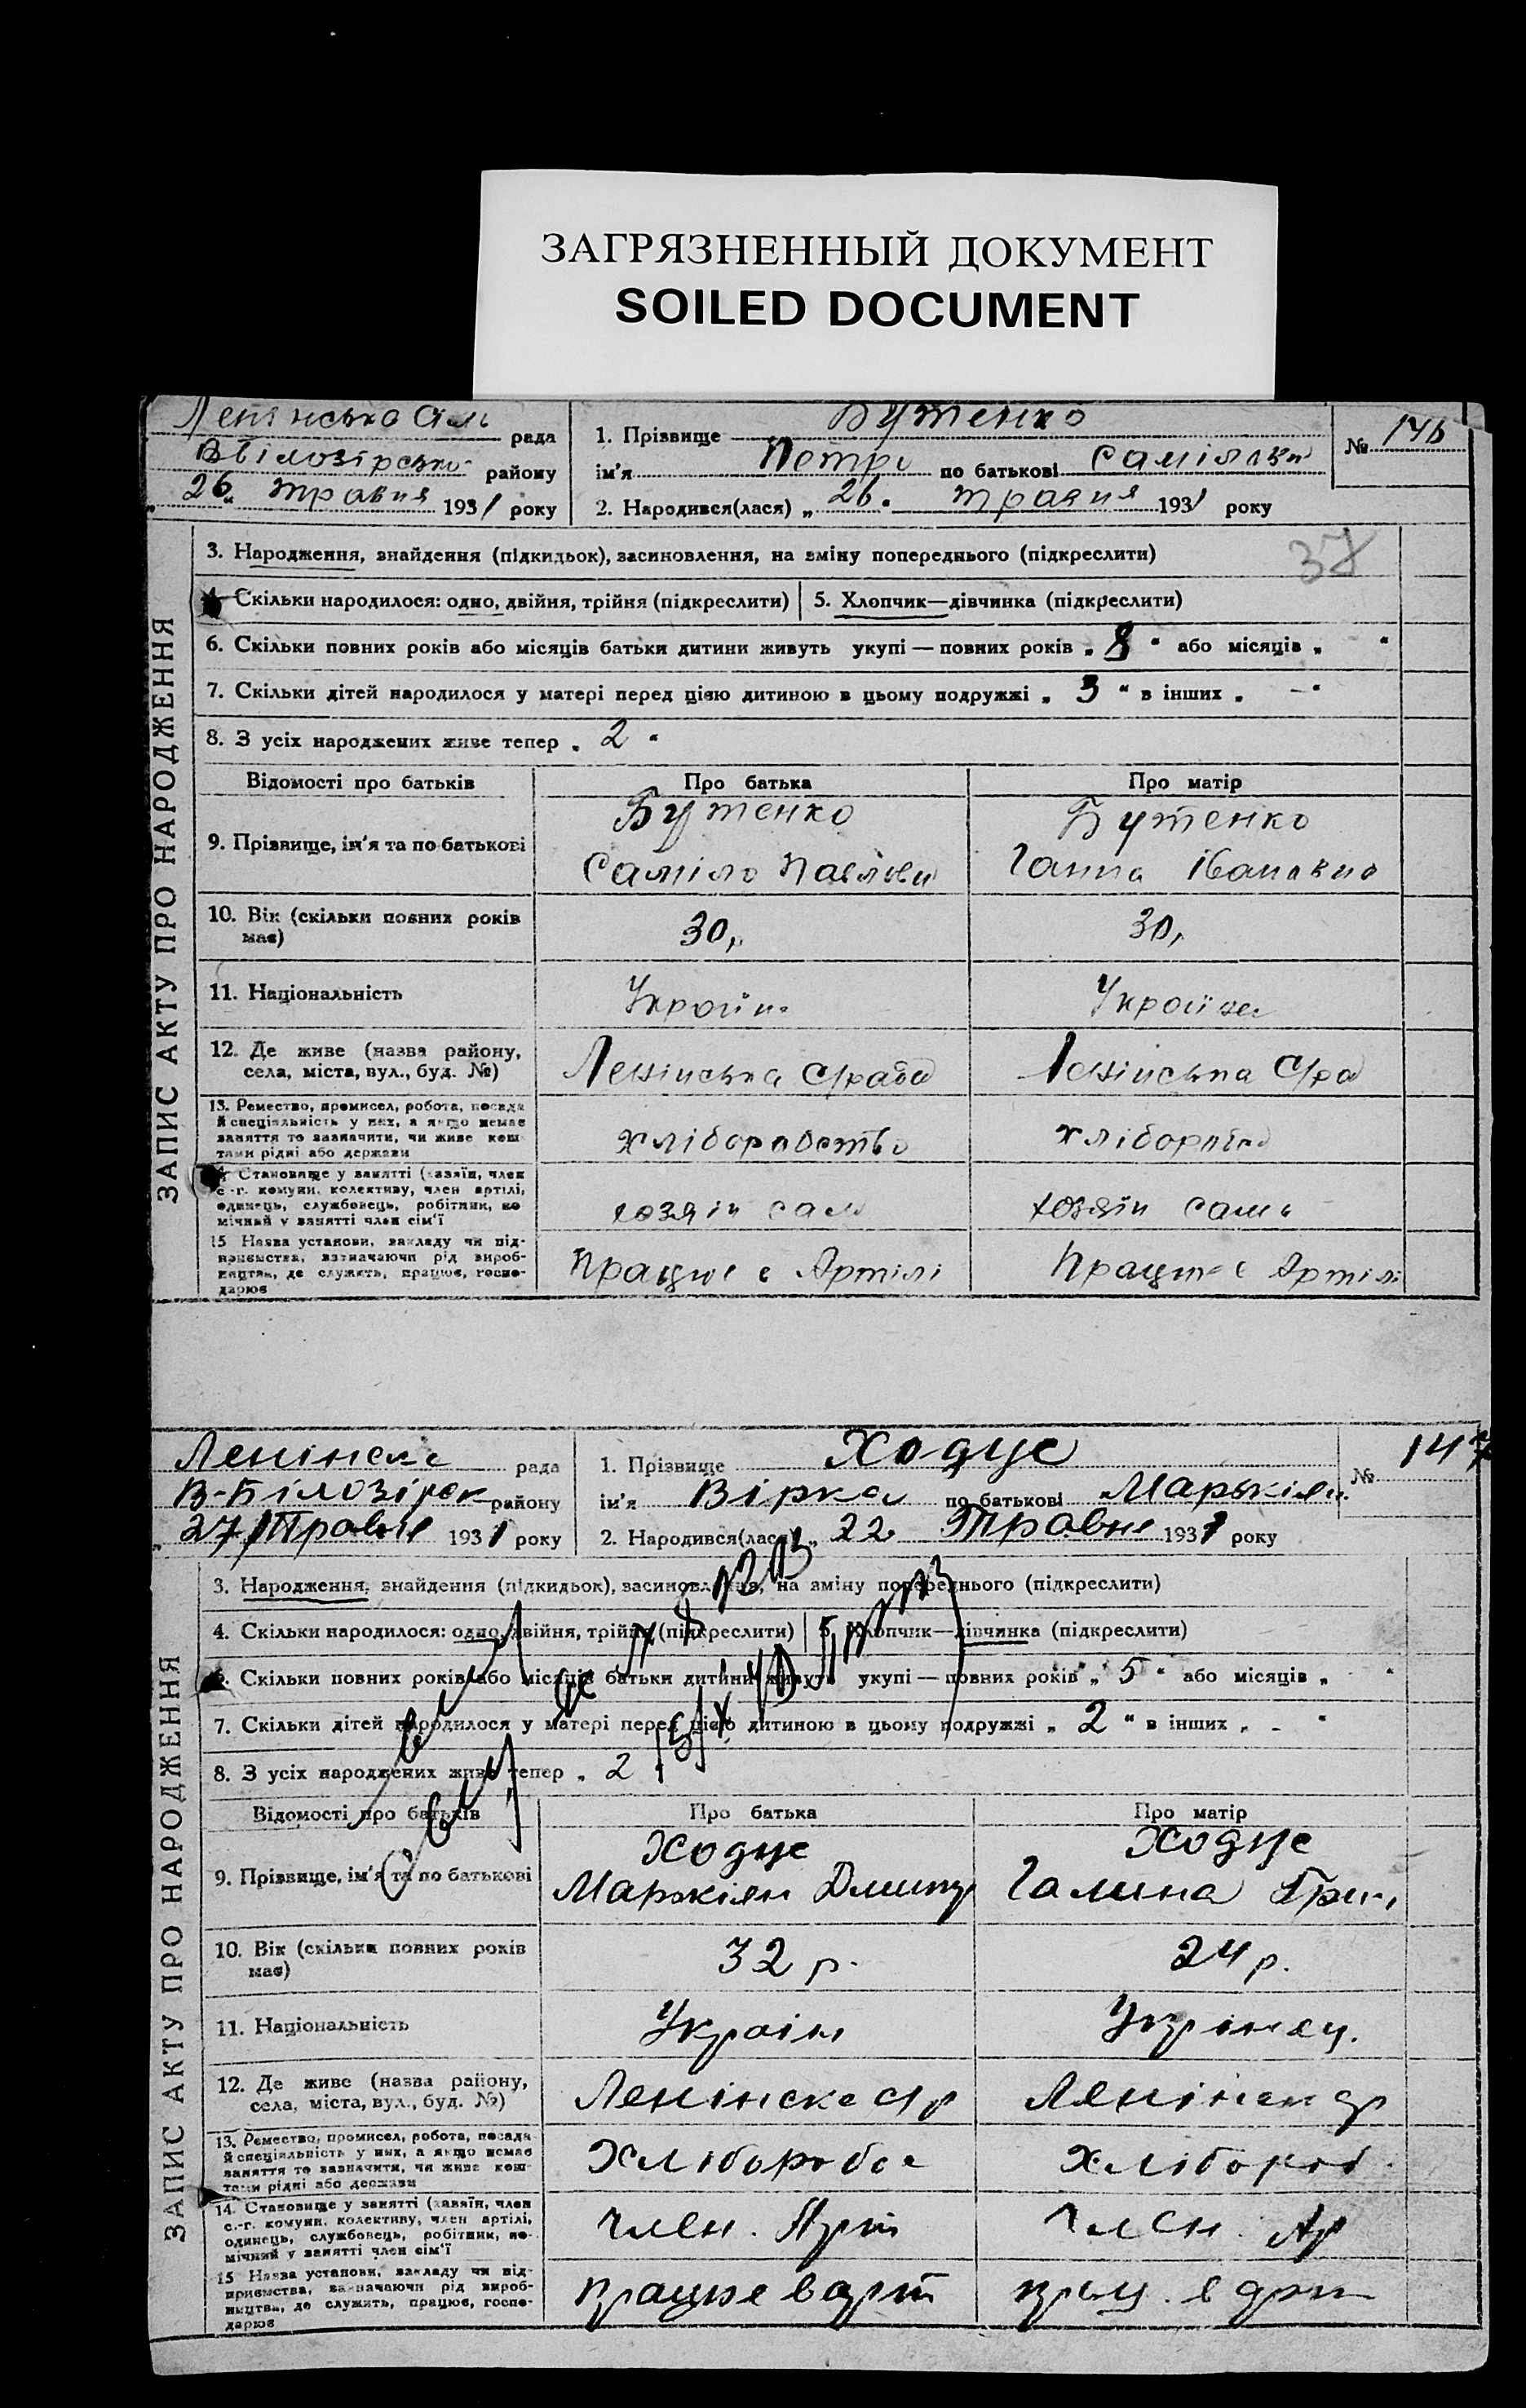 ЗАГРЯЗНЕННЫЙ ДОКУМЕНТ
SOILED DOCUMENT
рада
району
26 травня 1931 року
1. Прізвище Бутенко
ім'я Петро по батькові
2. Народився(лася) „ 26. травня 1931 року
№ 146
37
ЗАПИС АКТУ ПРО НАРОДЖЕННЯ
3. Народження, знайдення (підкидьок), засиновлення, на зміну попереднього (підкреслити)
4. Скільки народилося: одно, двійня, трійня (підкреслити) 5. Хлопчик—дівчинка (підкреслити)
6. Скільки повних років або місяців батьки дитини живуть укупі — повних років „ 8 " або місяців „ "
7. Скільки дітей народилося у матері перед цією дитиною в цьому подружжі „ 3 " в інших „ – "
8. З усіх народжених живе тепер „ 2 "
Відомості про батьків Про батька Про матір
9. Прізвище, ім'я та по батькові
Бутенко Бутенко
Саміло Павлови Ганна Івановно
10. Вік (скільки повних років має) 30, 30,
11. Національність
12. Де живе (назва району, села, міста, вул., буд. №) Ленінська С/рада Ленінська С/ра
13. Ремество, промисел, робота, посада й спеціяльність у них, а якщо немає заняття то зазначити, чи живе коштами рідні або держави
хліборобство
14. Становище у занятті (хазяїн, член с.-г. комуни, колективу, член артілі, одинець, службовець, робітник, помічний у занятті член сім'ї
хозяін сам хозяін сама
15 Назва установи, закладу чи підприємства, зазначаючи рід виробництва, де служить, працює, господарює
Працює в Артілі Працює в Артілі
рада
В-Білозірск району
27/Травня 1931 року
1. Прізвище Ходус
ім'я Вірка по батькові Марькіян.
2. Народився(лася) „ 22 Травня 1931 року
№ 147
ЗАПИС АКТУ ПРО НАРОДЖЕННЯ
3. Народження, знайдення (підкидьок), засиновлення, на зміну попереднього (підкреслити)
4. Скільки народилося: одно, двійня, трійня (підкреслити) 5. Хлопчик—дівчинка (підкреслити)
6. Скільки повних років або місяців батьки дитини живуть укупі — повних років „ 5 " або місяців „ "
7. Скільки дітей народилося у матері перед цією дитиною в цьому подружжі „ 2 " в інших „ - "
8. З усіх народжених живе тепер „ 2
Відомості про батьків Про батька Про матір
9. Прізвище, ім'я та по батькові
Ходус Ходус
Маркіян Дмитр Галина Григ
10. Вік (скільки повних років має) 32 р. 24 р.
11. Національність Україн
12. Де живе (назва району, села, міста, вул., буд. №)
13. Ремество, промисел, робота, посада й спеціяльність у них, а якщо немає заняття то зазначити, чи живе коштами рідні або держави
Хлібороб.
14. Становище у занятті (хазяїн, член с.-г. комуни, колективу, член артілі, одинець, службовець, робітник, помічний у занятті член сім'ї
Член. Арт Член. Ар
15 Назва установи, закладу чи підприємства, зазначаючи рід виробництва, де служить, працює, господарює
працює в арт прац. в арт